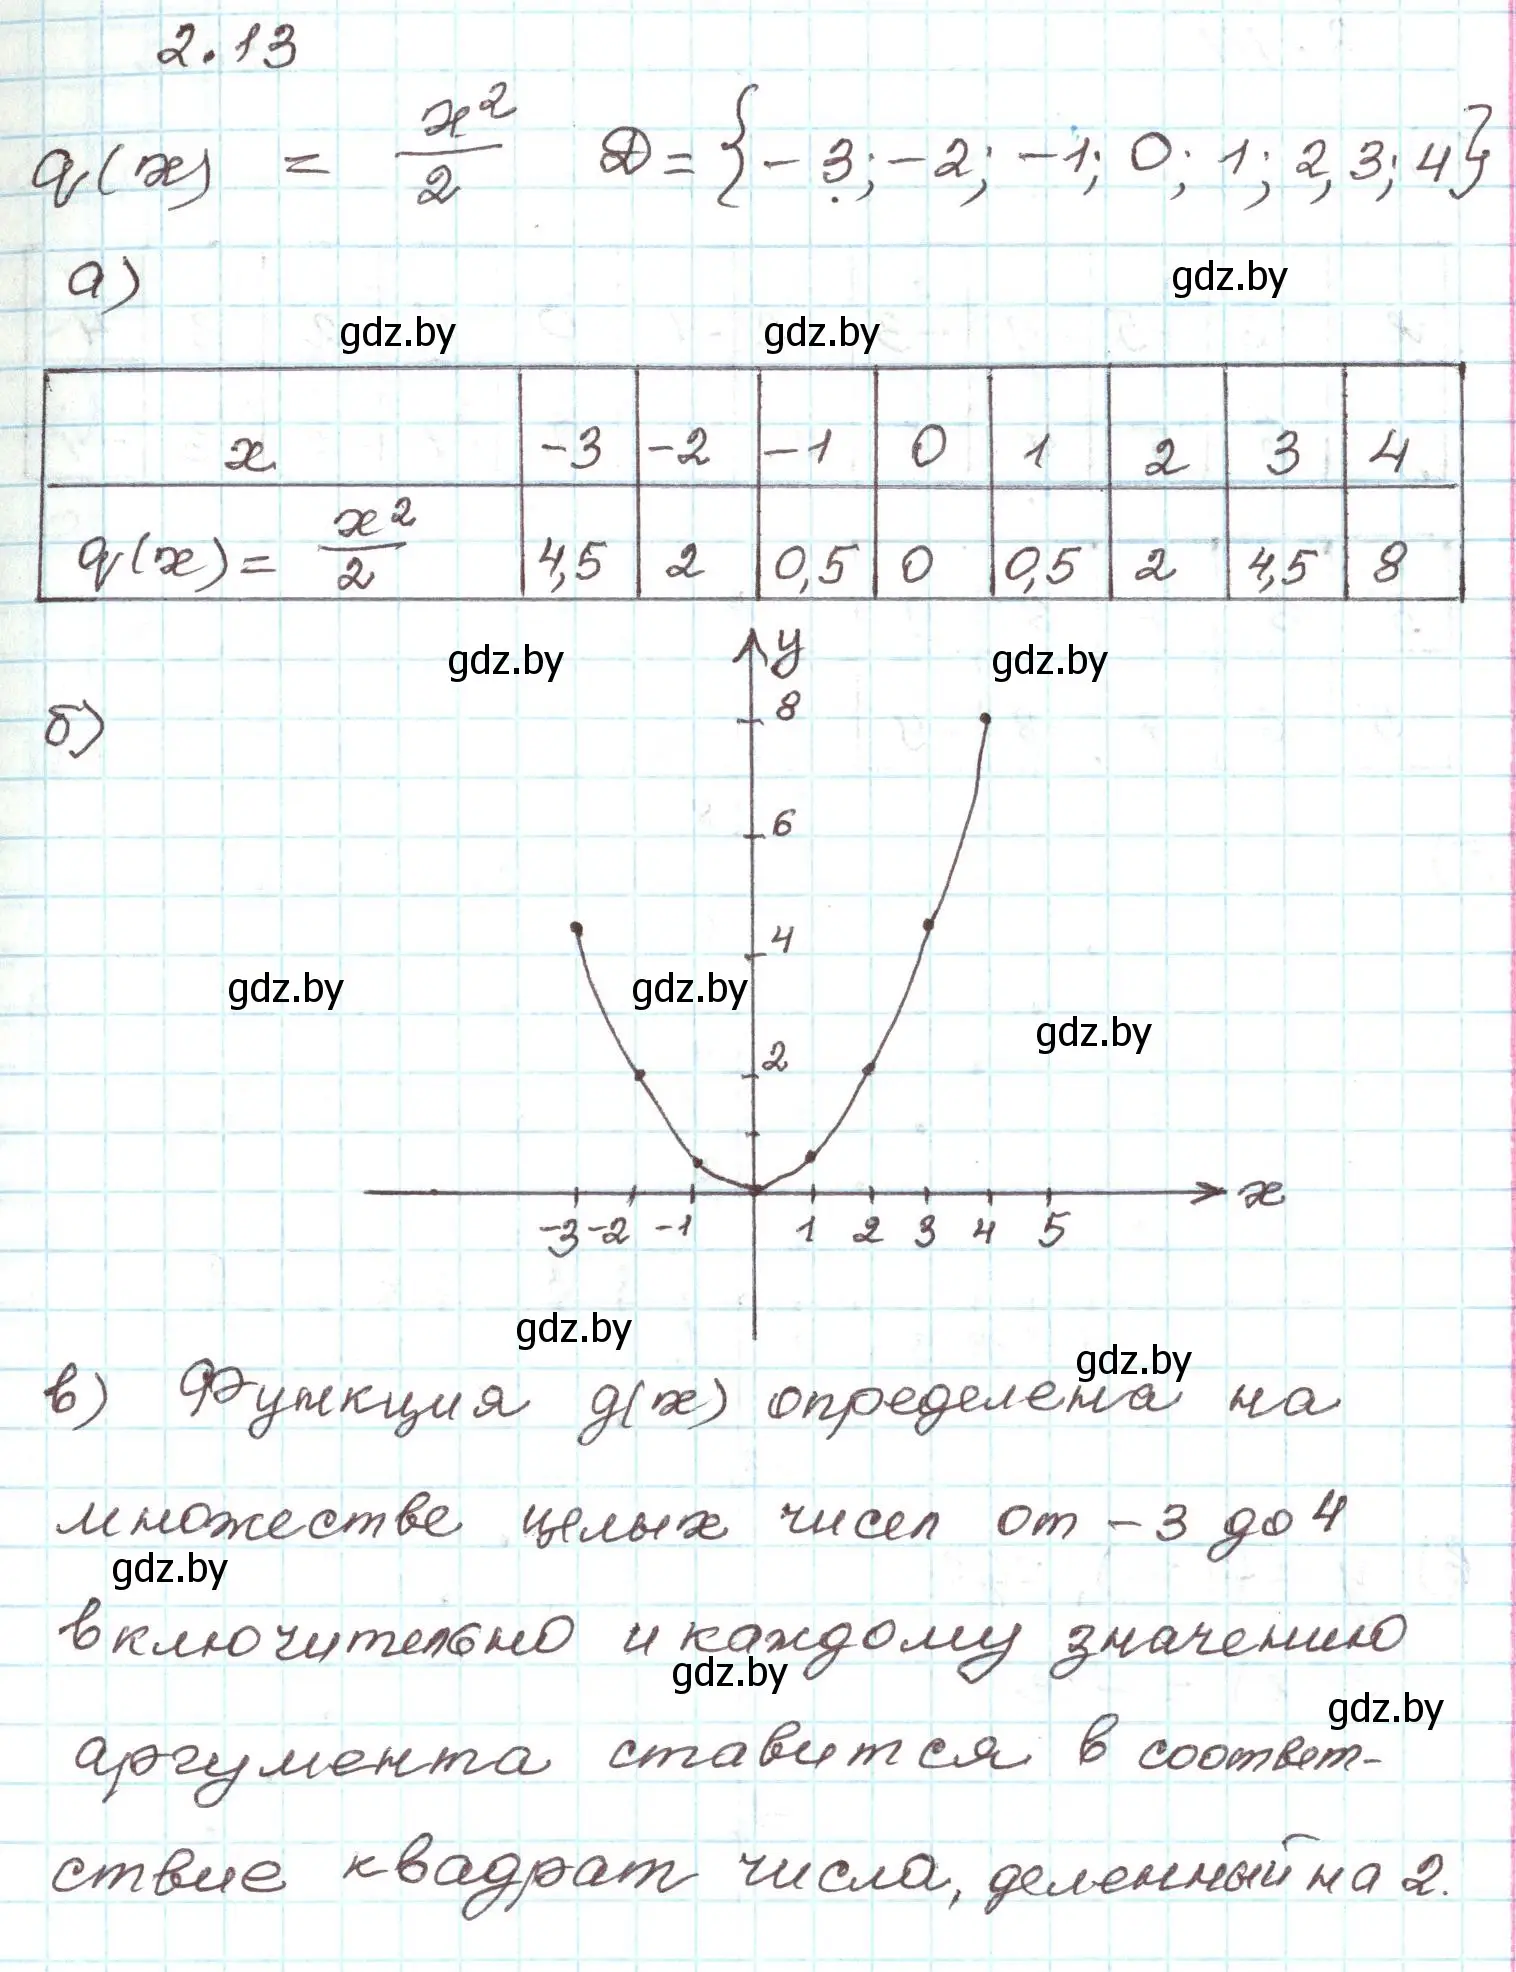 2.13
q(x) = x²/2 D = {-3; -2; -1; 0; 1; 2, 3; 4}
а)
gdz.by
gdz.by gdz.by
x -3 -2 -1 0 1 2 3 4
q(x) = x²/2 4,5 2 0,5 0 0,5 2 4,5 8
gdz.by y gdz.by
б) 8
6
4
gdz.by gdz.by
gdz.by
2
x
-3 -2 -1 1 2 3 4 5
gdz.by
gdz.by
в) Функция g(x) определена на
множестве целых чисел от -3 до 4
gdz.by
включительно и каждому значению
gdz.by
gdz.by
аргумента ставится в соответ-
ствие квадрат числа, деленный на 2.